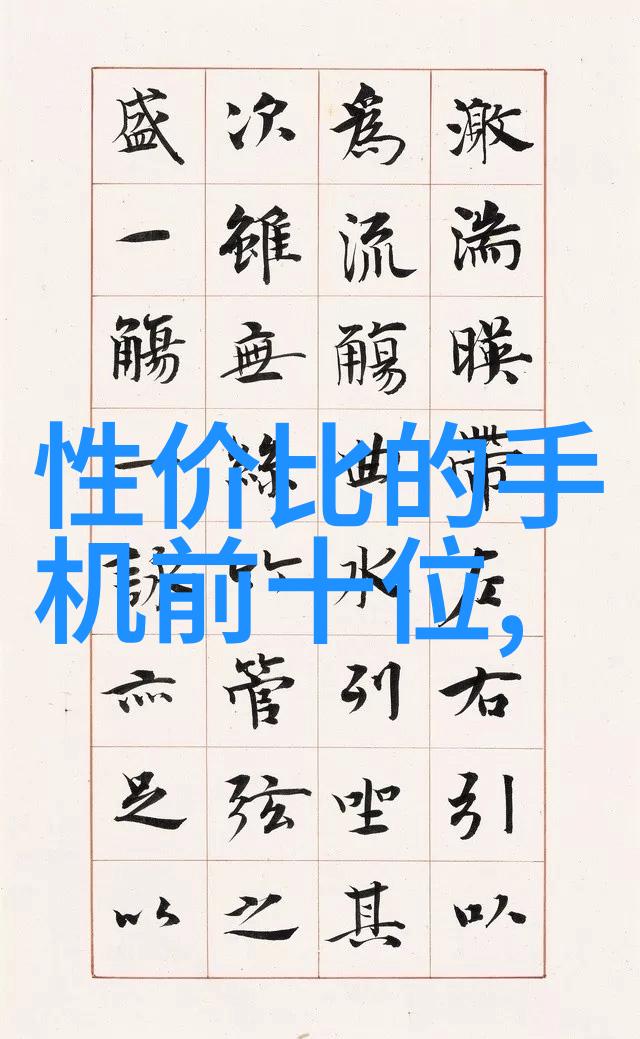 激湍暎帶左右引以
爲流觴曲水列坐其
次雖無絲竹管弦之
盛一觴一詠亦足以
性价比的手
机前十位,